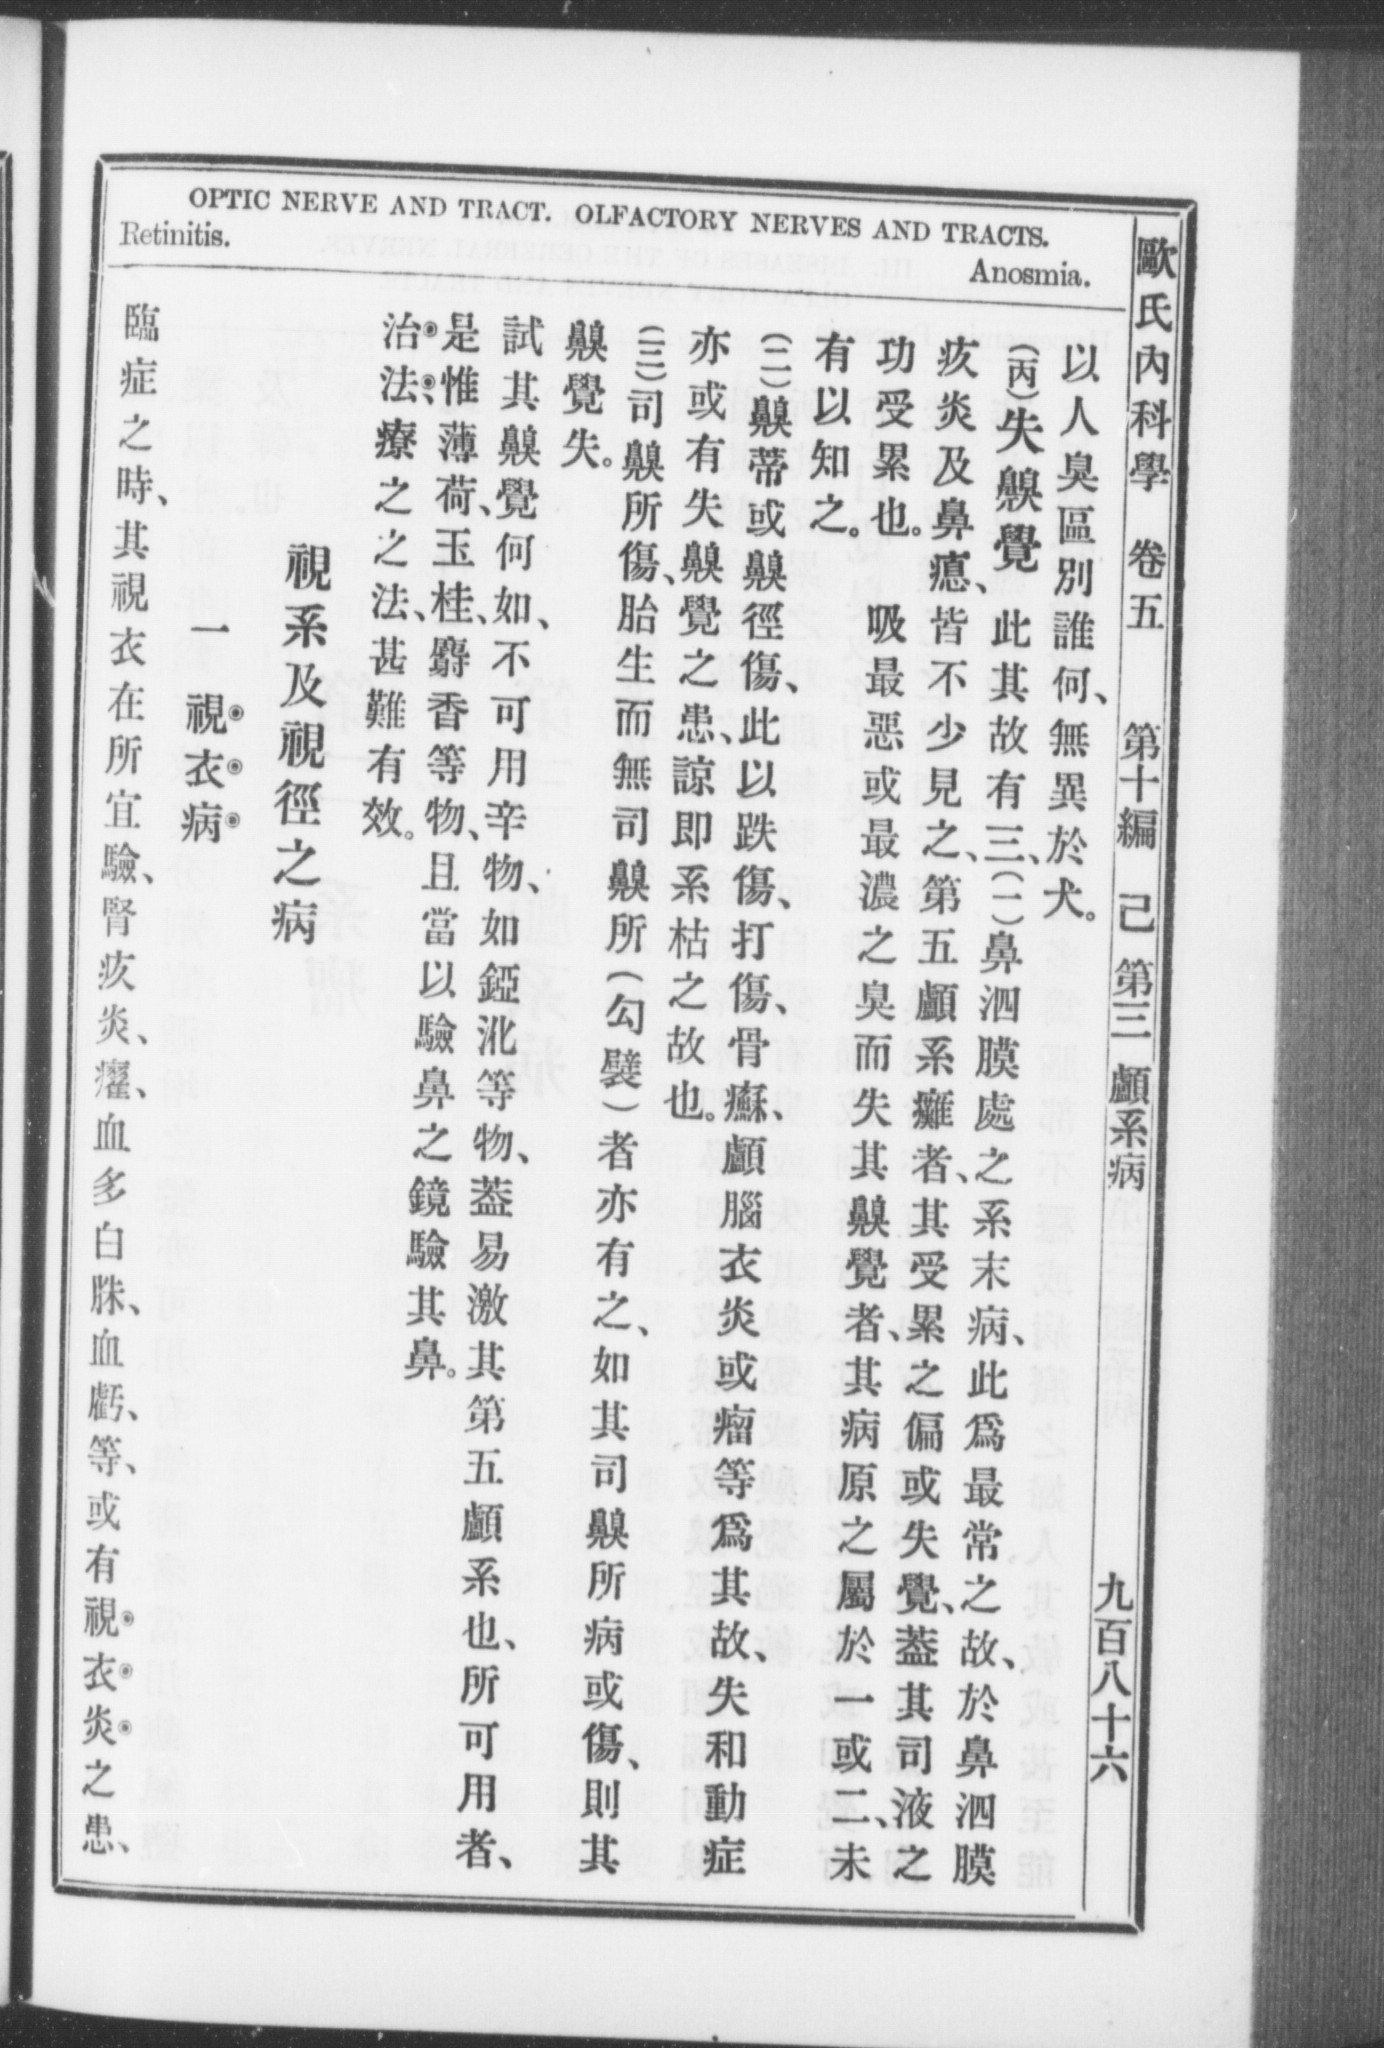 OPTIC NERVE AND TRACT. OLFACTORY NERVES AND TRACTS.
Retinitis.
Anosmia.
歐氏內科學 卷五 第十編 己 第三 顱系病 九百八十六
以人臭區別誰何、無異於犬。
(丙)失齅覺 此其故有三、(一)鼻泗膜處之系末病、此爲最常之故、於鼻泗膜
疢炎及鼻瘜、皆不少見之、第五顱系癱者、其受累之偏或失覺、葢其司液之
功受累也。 吸最惡或最濃之臭而失其齅覺者、其病原之屬於一或二、未
有以知之。
(二)齅蒂或齅徑傷、此以跌傷、打傷、骨癬、顱腦衣炎或瘤等爲其故、失和動症
亦或有失齅覺之患、諒即系枯之故也。
(三)司齅所傷、胎生而無司齅所(勾襞)者亦有之、如其司齅所病或傷、則其
齅覺失。
試其齅覺何如、不可用辛物、如錏沘等物、葢易激其第五顱系也、所可用者、
是惟薄荷、玉桂、麝香等物、且當以驗鼻之鏡驗其鼻。
治法、療之之法、甚難有效。
視系及視徑之病
一 視衣病
臨症之時、其視衣在所宜驗、腎疢炎、癯、血多白脒、血虧、等、或有視衣炎之患、